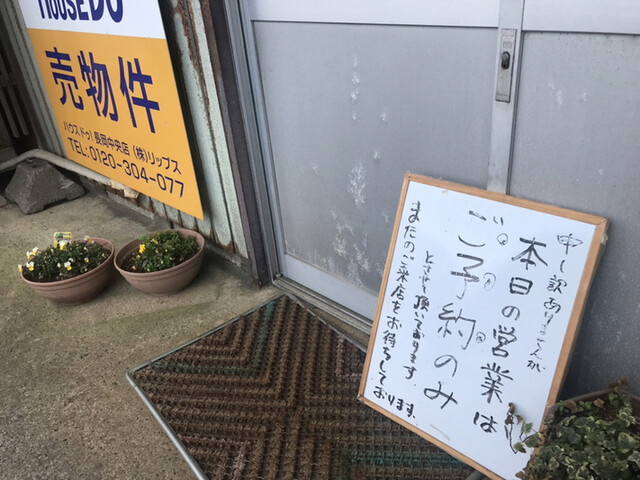 HOUSEDO
売物件
ハウスドゥ!長岡中央店 (株)リップス
TEL:0120-304-077
申し訳ありませんが
本日の営業は
ご予約のみ
とさせて頂いております。
またのご来店をお待ちしております。